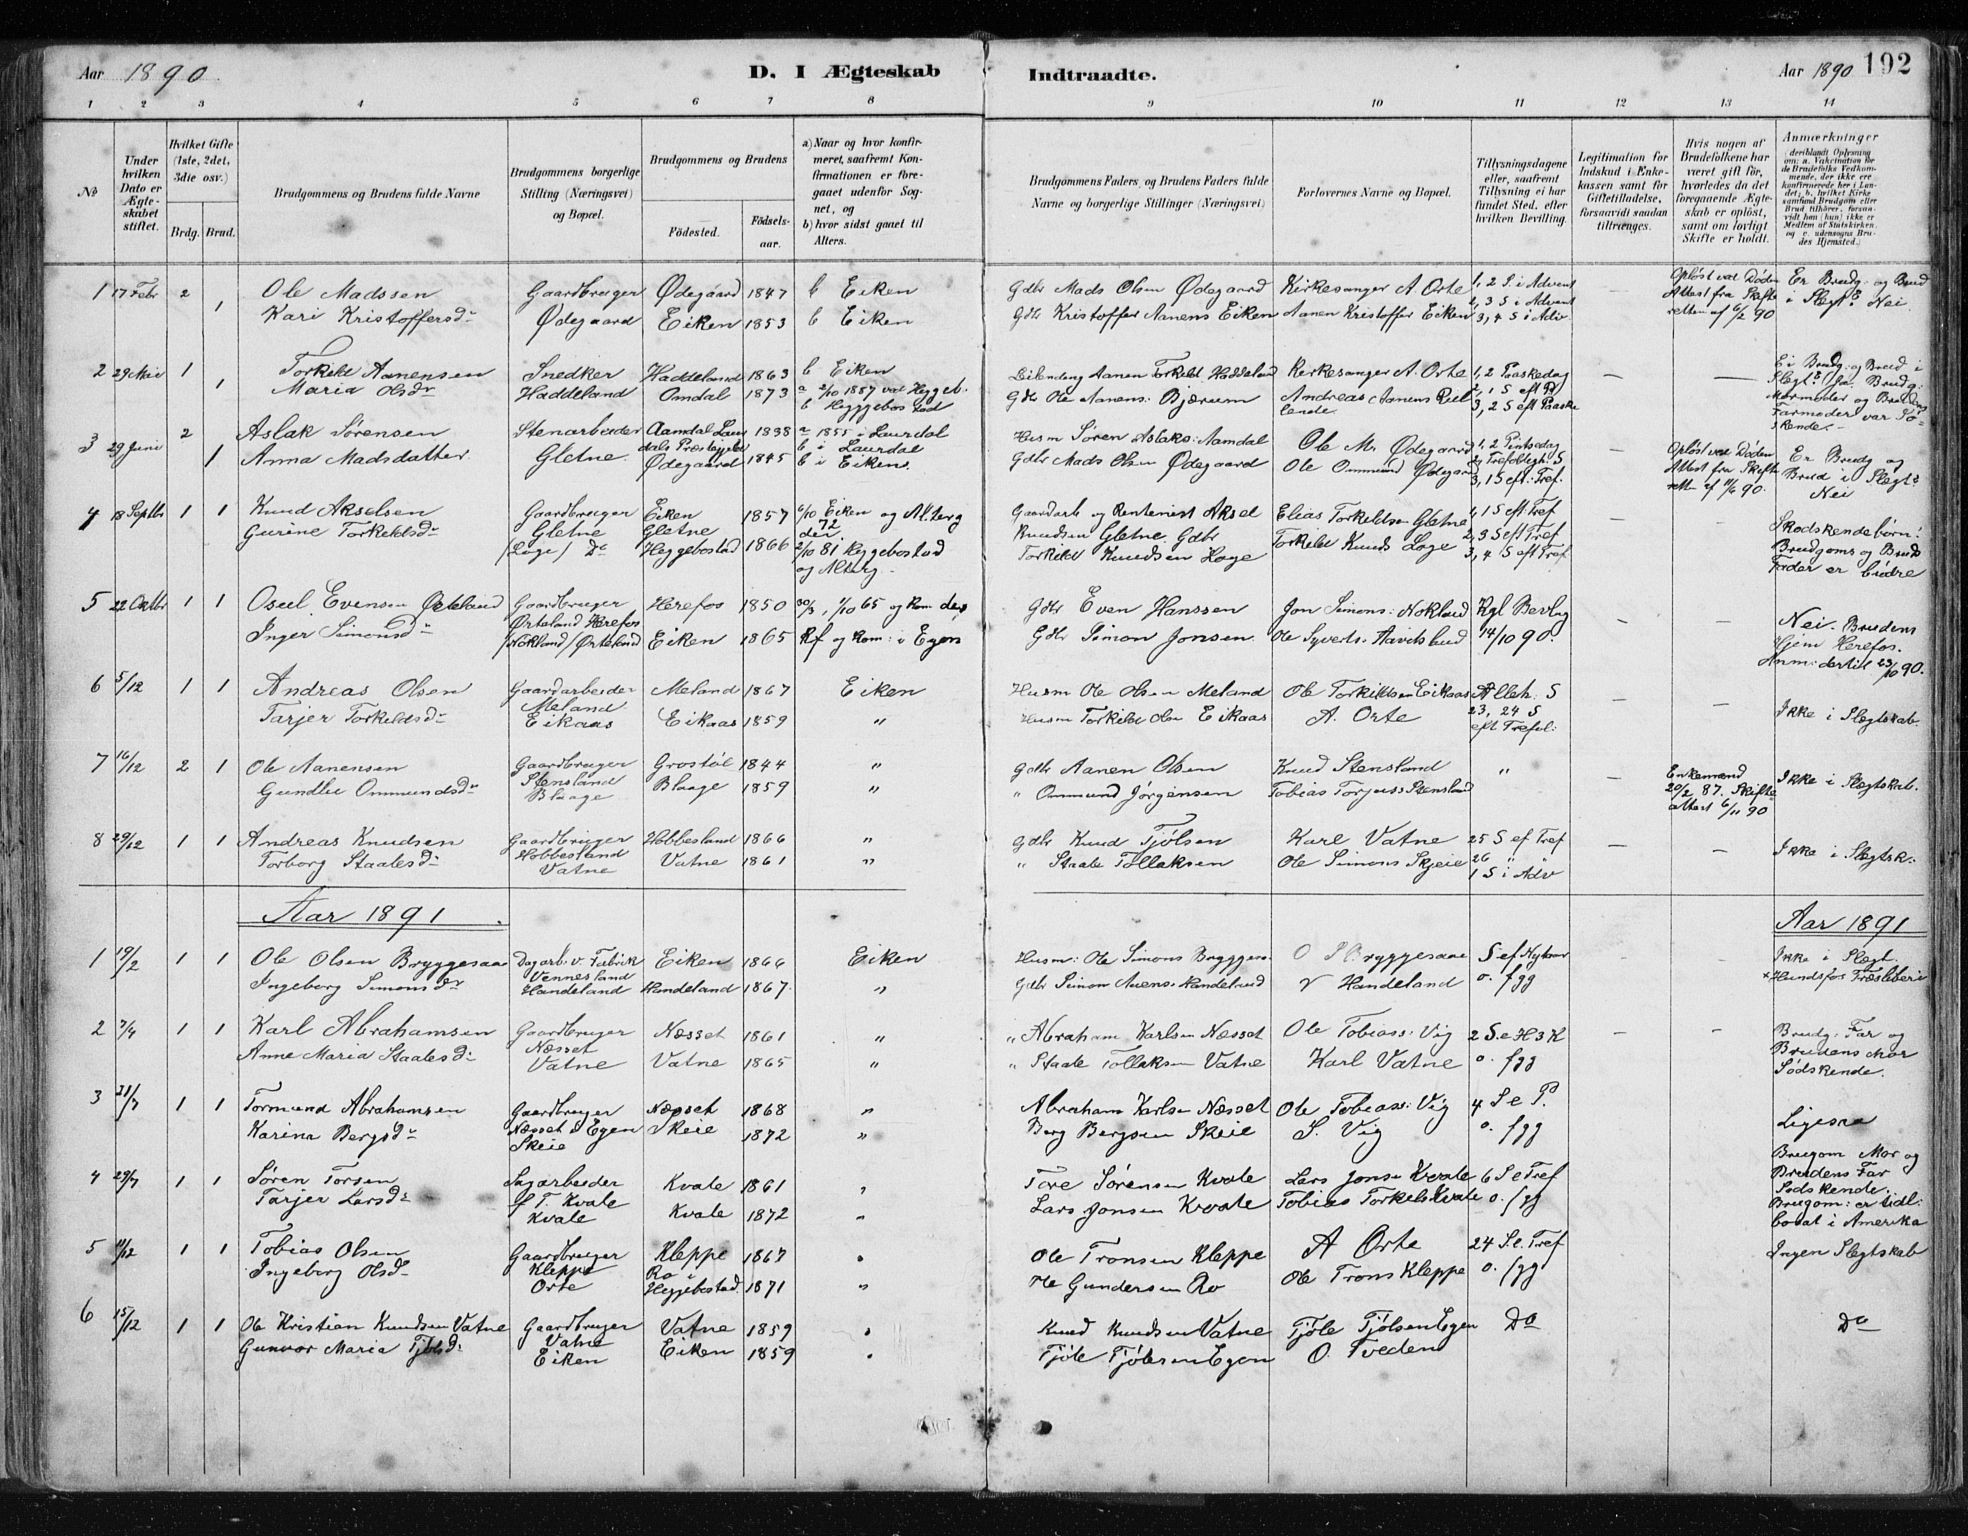 Aar 1890. D. I Ægteskab Indtraadte. Aar 1890 192
1 2 3 4 5 6 7 8 9 10 11 12 13 14
№
Under hvilken Dato er Ægteskabet stiftet.
Hvilket Gifte (1ste, 2det, 3die osv.)
Brdg. Brud.
Brudgommens og Brudens fulde Navne
Brudgommens borgerlige Stilling (Næringsvei) og Bopæl.
Brudgommens og Brudens
Födested. Födselsaar.
a) Naar og hvor konfirmeret, saafremt Konfirmationen er foregaaet udenfor Sognet, og
b) hvor sidst gaaet til Alters.
Brudgommens Faders og Brudens Faders fulde Navne og borgerlige Stillinger (Næringsvei)
Forlovernes Navne og Bopæl.
Tillysningsdagene eller, saafremt Tillysning ei har fundet Sted, efter hvilken Bevilling.
Legitimation for Indskud i Enkekassen samt for Giftetilladelse, forsaavidt saadan tiltrænges.
Hvis nogen af Brudefolkene har været gift før, hvorledes da det foregaaende Ægteskab er opløst, samt om lovligt Skifte er holdt.
Anmærkninger
(deriblandt Oplysning om: a. Vakcination for de Brudefolks Vedkommende, der ikke ere konfirmerede her i Landet; b. hvilket Kirkesamfund Brudgom eller Brud tilhörer, forsaavidt han (hun) ikke er Medlem af Statskirken, og c. udensogns Brudes Hjemsted.)
1 17 Febr 2 Ole Madssen Gaardbruger Ødegaard 1847 b Eiken Gdbr Mads Olsen Ødegaard Kirkesanger A. Orte 1, 2 S. i Advent — Opløst ved Døden Er Brudg: og Brud
1 Kari Kristoffersdr Ødegaard Eiken 1853 b Eiken Gdbr Kristoffer Aanens Eiken Aanen Kristoffer Eiken 2, 3 S i Advent Attest fra Skifteretten af 6/2 90 i Slegt? Nei
3, 4 S i Adv.
2 29 Mai 1 Torkild Aanensen Snedker Haddeland 1863 b Eiken Aanen Torkeld Haddeland Kirkesanger A. Orte 1, 2 Paaskedag — — Er Brudg: og Brud i
1 Maria Olsdr Haddeland Omdal 1873 a 2/10 1887 ved Heggeb. Gdbr Ole Aanens: Bjærum Andreas Aanens 2, 1 S eft Slegt? Ja. Brudg:
b Heggebostad 3, 2 S eft Paaske Mormoder og Brudens Farmoder var Søskende.
3 29 Juni 2 Aslak Sørensen Stenarbeider Aamdal Laurdals Præstegjeld 1838 a 1855 i Laurdal Husm Søren Aslaks: Aamdal Ole M. Ødegaard 1, 2 Pintsedag — Opløst ved Døden Er Brudg og
b i Laurdal
1 Anna Madsdatter Gletne Ødegaard 1845 b i Eiken. Gdbr Mads Olsen Ødegaard Ole Ommund Ødegaard 2, Trefoldigh: S Attest fra Skifteretten af 11/6 90. Brud i Slegt? Nei
3, 1 S eft: Tref.
4 18 Septbr 1 1 Knud Akselsen Gaardbruger Eiken 1857 6/10 Eiken og Alterg Gaardarb og Rentenist Aksel Elias Torkeldsen Gletne 1, 1 S eft Tref Skodskendebørn:
Gurine Torkeldsdr Gletne Gletne der 72 Knudsen Gletne. Gdbr Torkeld Knuds Loge 2, 3 S eft Tref Brudgoms og Bruds
(Loge) Do Heggebostad 1866 2/10 81 Heggebostad og Alterg. Torkild Knudsen Loge 3, 4 S eft Tref. Fader er brødre
5 22 Oktbr 1 1 Osul Evensen Ørteland Gaardbruger Herefos 1850 30/3, 1/10 65 og Kom der Gdbr Even Hanssen Jon Simons: Nokland Kgl Bevlng — — Nei. Brudens
Ørteland Herefos
Inger Simonsdr (Nokland) Ørteland Eiken 1865 Kf og Kom: i Egen Gdbr Simon Jonsen. Ole Syverts. Aavitsland 14/10 90. Hjem Herefos.
Anm: dertil 23/10 90.
6 5/12 1 1 Andreas Olsen Gaardarbeider Meland 1867 Eiken Husm Ole Olsen Meland Ole Torkildsen Eikaas Alleh: S — —
Meland
Tarjer Torkeldsdr Eikaas Eikaas 1859 " Husm Torkild Olsn Eikaas A. Orte 23, 24 S Ikke i Slegtskab
eft Trefol:
7 16/12 2 1 Ole Aanensen Gaardbruger Grostøl 1844 " Gdbr Aanen Olsen Knud Stensland " — Enkemand Ikke i Slegtskab.
Stensland
Gundlie Ommundsdr Blaage Blaage 1859 " " Ommund Jørgensen Tobias Torjuss Stensland 20/2 87. Skifteattest 6/11 90
8 29/12 1 1 Andreas Knudsen Gaardbruger Hobbesland 1866 " Gdbr Knud Tjølsen Karl Vatne 25 S ef Tref — — Ikke i Slegtsk.
Hobbesland
Torborg Staalesdr Vatne Vatne 1861 " " Staale Tollaksen Ole Simons Skjeie 26 " "
1 S i Adv
Aar 1891. Aar 1891
1 19/2 1 1 Ole Olsen Bryggesaa Dagarb. v. Fabrik Eiken 1866 Eiken Husm: Ole Simons Bryggess Bryggesaae S. ef Nytaar Ikke i Slegt.
Vennesland
Ingeborg Simonsdr Handeland Handeland 1867. " Gdbr Simon Handeland Handeland o. fgg × Hundsfos Træsliberi
2 7/4 1 1 Karl Abrahamsen Gaardbruger Næsset 1861 " " Abraham Karlsen Næsset Ole Tobiass: Vig 2 S. e H3K — — Brudg: Far og
Næsset
Anne Maria Staalesdr Vatne Vatne 1865 " " Staale Tollaksen Vatne Karl Vatne o. fgg Brudens Mor
Sødskende.
3 21/7 1 1 Tormund Abrahamsen Gaardbruger Næsset 1868 " Abraham Karlsen Næsset Ole Tobiass: Vig 4 S e P.
Næsset i Egen
Karina Bergsdr Skeie Skeie 1872 " Berg Bergsen Skeie S. Vig o. fgg Ligesaa
4 29/7 1 1 Søren Torsen Sagarbeider Kvale 1861 " Tore Sørensen Kvale Lars Jonsen Kvale 6 S e Tref Brudgom Mor og
Brudens Far
Tarjer Larsdr Kvale Kvale 1872 " Lars Jonsen Kvale Tobias Torkels Kvale o. fgg Sødskende.
Brudgom: er tidl: bosat i Amerika
5 11/12 1 1 Tobias Olsen Gaardbruger Kleppe 1867 " Ole Tronsen Kleppe A Orte 24 S. e. Tref Ingen Slegtskab
Kleppe
Ingeborg Olsdr Orte Ro i Heggebostad. 1871 " Ole Gundersen Ro Ole Trons Kleppe o. fgg
6 15/12 1 1 Ole Kristian Knudsen Vatne Gaardbruger Vatne 1859 " Knud Knudsen Vatne Tjøle Tjølsen Egen Do Do
Vatne
Gunvor Maria Tjølsdr Eiken Eiken 1859 " Tjøle Tjølersen Egen O. Tveden